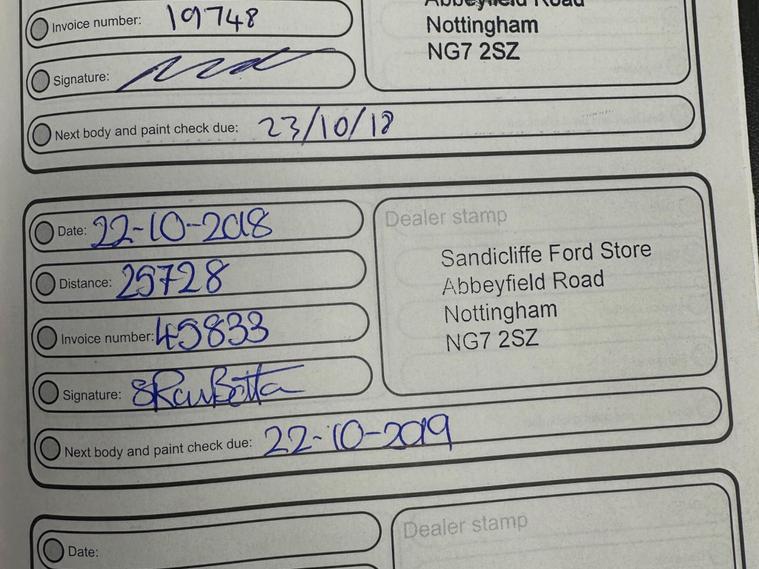 Abbeyfield Road
Invoice number: 19748
Nottingham
NG7 2SZ
Signature:
Next body and paint check due: 23/10/18
Date: 22-10-2018
Dealer stamp
Distance: 25728
Sandicliffe Ford Store
Abbeyfield Road
Invoice number: 45833
Nottingham
NG7 2SZ
Signature:
Next body and paint check due: 22-10-2019
Dealer stamp
Date: